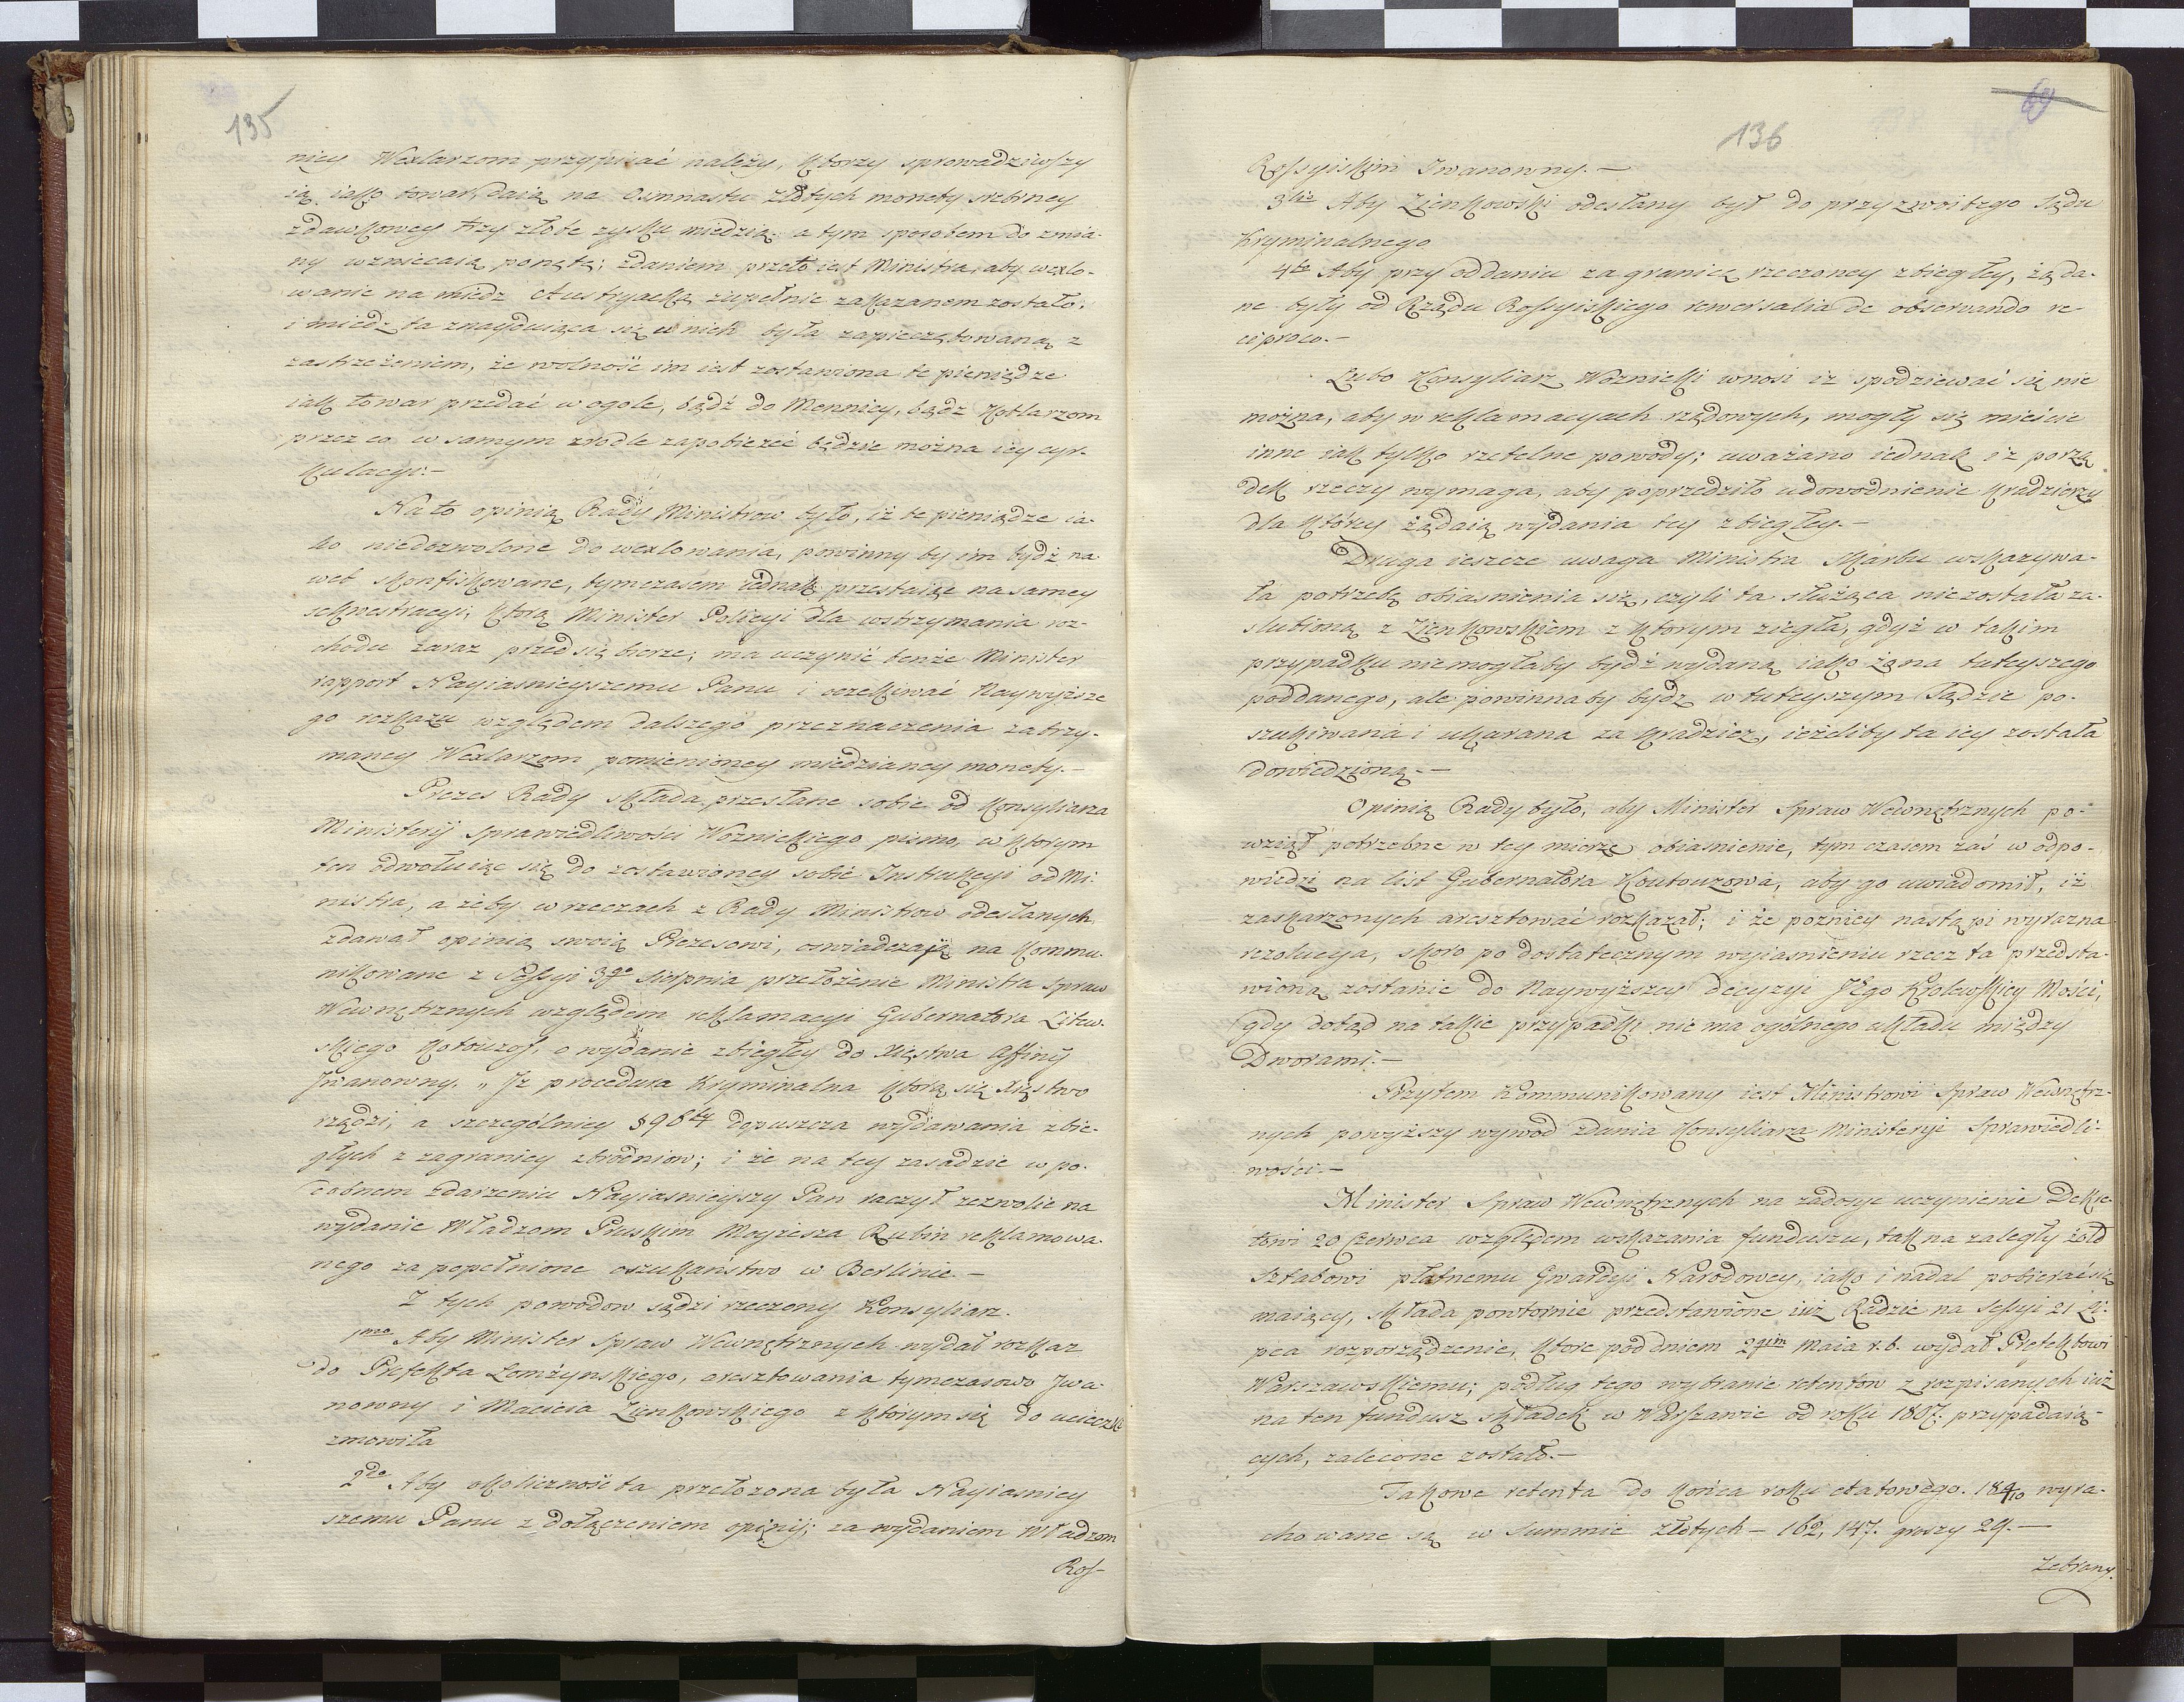 135
nicy Wexlarzom przypisać należy, ktorzy sprowadziwszy
ią iako towar, daią na Osmnastu złotych monety srebrney
zdawkowey trzy złote zysku miedzią, a tym sposobem do zmia-
ny wzniecaią ponętę; zdaniem przeto iest Ministra, aby wexlo-
wanie na miedz Austryacką zupełnie zakazanem zostało,
i miedz ta znayduiąca się u nich była zapieczętowaną z
zastrzeżeniem, że wolność im iest zostawiona te pieniądze
iak towar przedać w ogole, bądź do Mennicy, bądz Kotlarzom
przez co w samym zrodle zapobiezeć będzie można iey cyr-
kulacyi.-
Na to opinią Rady Ministrow było, iż te pieniądze ia-
ko niedozwolone do wexlowania, powinny by im bydź na-
wet skonfiskowane, tymczasem iednak przestaiąc na samey
sekwestracyi, ktorą Minister Policyi dla wstrzymania roz-
chodu zaraz przedsiębierze; ma uczynić tenże Minister
rapport Nayiasnieyszemu Panu i oczekiwać Naywyższe
go rozkazu względem dalszego przeznaczenia zatrzy-
maney Wexlarzom pomienioney miedzianey monety.-
Prezes Rady składa przesłane sobie od Konsyliarza
Ministerij Sprawiedliwości Woznickiego pismo, w ktorym
ten odwołuiąc się do zostawioney sobie Instrukcyi od Mi-
nistra, ażeby w rzeczach z Rady Ministrow odesłanych
zdawał opinią swoią Prezesowi, oswiadcza na kommu-
nikowane z Sessyi 3go Sierpnia przełożenie Ministra Spraw
Wewnętrznych względem reklamacyi Gubernatora Litew-
skiego Kotouzof, o wydanie zbiegłey do Xięstwa Affinij
Iwanowny. „Iż procedura Kryminalna ktorą się Xięstwo
rządzi, a szczególniey § 96ty dopuszcza wydawania zbie-
głych z zagranicy zbrodniow; i że na tey zasadzie w po-
dobnem zdarzeniu Nayiasnieyszy Pan raczył zezwolić na
wydanie Władzom Pruskim Moyżesza Rubin reklamowa-
nego za popełnione oszukaństwo w Berlinie.-
Z tych powodow sądzi rzeczony Konsyliarz.
1mo Aby Minister Spraw Wewnętrznych wydał rozkaz
do Prefekta Łomżynskiego, aresztowania tymczasowo Iwa-
nowny i Macieia Zienkowskiego z ktorym się do ucieczki
zmowiła
2do Aby okoliczność ta przełożona była Nayiasniey
szemu Panu z dołączeniem opinij; za wydaniem Władzom
Ros-
69
136
Rossyiskim Iwanowny.-
3tio Aby Zienkowski odesłany był do przyzwoitego Sądu
Kryminalnego
4to Aby przy oddaniu za granicę rzeczoney zbiegłey, żąda-
ne były od Rządu Rossyiskiego rewersalia de observando re
ciproco.-
Lubo Konsyliarz Woznicki wnosi iż spodziewać się nie
można, aby w reklamacyach rządowych, mogły się mieście
inne iak tylko rzetelne powody; uważano iednak iż porzą
dek rzeczy wymaga, aby poprzedziło udowodnienie kradzieży
dla którey żądaią wydania tey zbiegłey.-
Druga ieszcze uwaga Ministra Skarbu wskazywa-
ła potrzebę obiasnienia się, czyli ta służąca nie została za-
slubioną z Zienkowskiem z ktorym ziegła, gdyż w takim
przypadku niemogłaby bydź wydaną iako żona tuteyszego
poddanego, ale powinnaby bydz w tuteyszym Sądzie po-
szukiwana i ukarana za kradzież, ieżeliby ta iey została
dowiedzioną.-
Opinią Rady było, aby Minister Spraw Wewnętrznych po-
wziął potrzebne w tey mierze obiasnienie, tym czasem zaś w odpo-
wiedzi na list Gubernatora Koutouzowa, aby go uwiadomił, iż
zaskarzonych aresztować rozkazał; i że pozniey nastąpi wyrazna
rezolucya, skoro po dostatecznym wyiasnieniu rzecz ta przedsta-
wioną zostanie do Naywyższey Decyzyi JEgo Krolewskiey Mości,
gdy dotąd na takie przypadki nie ma ogólnego układu między
Dworami.-
Przytem kommunikowany iest Ministrowi Spraw Wewnętrz-
nych powyższy wywod Zdania Konsyliarza Ministeryi Sprawiedli-
wości.-
Minister Spraw Wewnętrznych na zadosyc uczynienie Dekre-
towi 20 Czerwca względem wskazania funduszu, tak na zaległy żołd
Sztabowi płatnemu Gwardyi Narodowey, iako i nadal pobierać się
maiący, składa powtornie przedstawione iuż Radzie na Sessyi 21 Li-
pca rozporządzenie, ktore pod dniem 29im Maia r.b. wydał Prefektowi
Warszawskiemu; podług tego wybranie retentow z rozpisanych iuż
na ten fundusz składek w Warszawie od roku 1807. przypadaią-
cych, zalecone zostało.-
Takowe retenta do końca roku etatowego. 18 9/10 wyra-
chowane są w Summie złotych - 162,147. groszy 29.-
Zebrany.